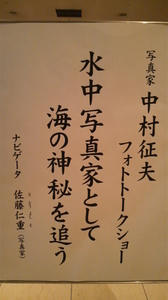 写真家 中村征夫
フォトトークショー
水中写真家として
海の神秘を追う
ナビゲータ 佐藤仁重(写真家)